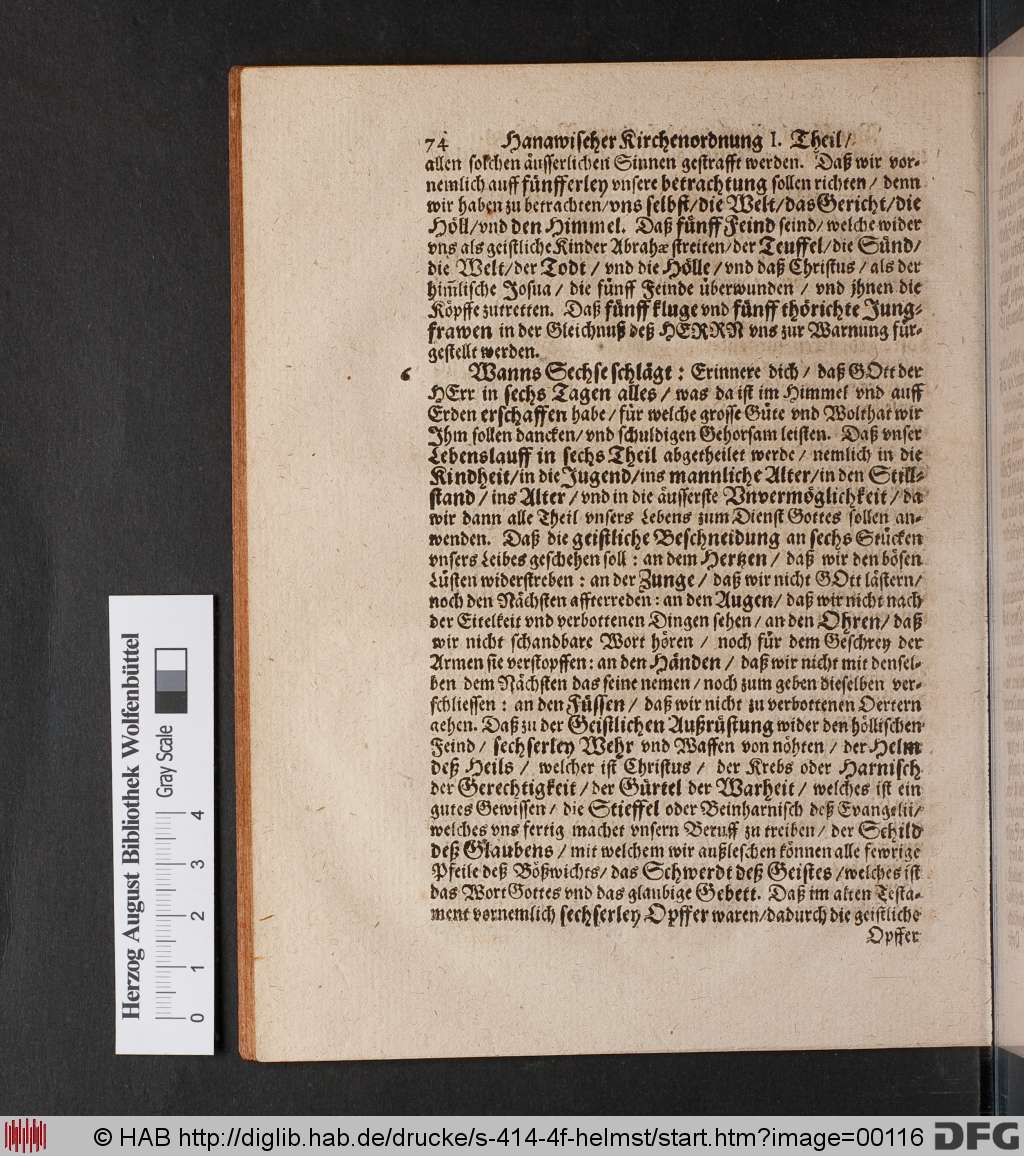 74 Hanawischer Kirchenordnung I. Theil/
allen solchen äusserlichen Sinnen gestrafft werden. Daß wir vor-
nemlich auff fünfferley vnsere betrachtung sollen richten / denn
wir haben zu betrachten/vns selbst/die Welt/das Gericht/die
Höll/vnd den Himmel. Daß fünff Feind seind/ welche wider
vns als geistliche Kinder Abrahæ streiten/der Teuffel/die Sünd/
die Welt/der Todt / vnd die Hölle / vnd daß Christus / als der
him̃lische Josua / die fünff Feinde überwunden / vnd jhnen die
Köpffe zutretten. Daß fünff kluge vnd fünff thörichte Jung-
frawen in der Gleichnuß deß HERRN vns zur Warnung für-
gestellt werden.
6 Wanns Sechse schlägt : Erinnere dich / daß GOtt der
HErr in sechs Tagen alles / was da ist im Himmel vnd auff
Erden erschaffen habe / für welche grosse Güte vnd Wolthat wir
Ihm sollen dancken/ vnd schuldigen Gehorsam leisten. Daß vnser
Lebenslauff in sechs Theil abgetheilet werde / nemlich in die
Kindheit/in die Jugend/ins mannliche Alter/in den Still-
stand / ins Alter / vnd in die äusserste Vnvermöglichkeit / da
wir dann alle Theil vnsers Lebens zum Dienst Gottes sollen an-
wenden. Daß die geistliche Beschneidung an sechs Stücken
vnsers Leibes geschehen soll : an dem Hertzen / daß wir den bösen
Lüsten widerstreben : an der Zunge / daß wir nicht GOtt lästern/
noch den Nächsten affterreden : an den Augen/ daß wir nicht nach
der Eitelkeit vnd verbottenen Dingen sehen / an den Ohren/ daß
wir nicht schandbare Wort hören / noch für dem Geschrey der
Armen sie verstopffen : an den Händen / daß wir nicht mit densel-
ben dem Nächsten das seine nemen / noch zum geben dieselben ver-
schliessen : an den Füssen / daß wir nicht zu verbottenen Oertern
gehen. Daß zu der Geistlichen Außrüstung wider den höllischen
Feind / sechserley Wehr vnd Waffen von nöhten / der Helm
deß Heils / welcher ist Christus / der Krebs oder Harnisch
der Gerechtigkeit / der Gürtel der Warheit / welches ist ein
gutes Gewissen / die Stieffel oder Beinharnisch deß Evangelii/
welches vns fertig machet vnsern Beruff zu treiben / der Schild
deß Glaubens / mit welchem wir außleschen können alle fewrige
Pfeile deß Bößwichts/ das Schwerdt deß Geistes /welches ist
das Wort Gottes vnd das glaubige Gebett. Daß im alten Testa-
ment vornemlich sechserley Opffer waren/dadurch die geistliche
Opffer
Herzog August Bibliothek Wolfenbüttel
Gray Scale
0 1 2 3 4
© HAB http://diglib.hab.de/drucke/s-414-4f-helmst/start.htm?image=00116 DFG